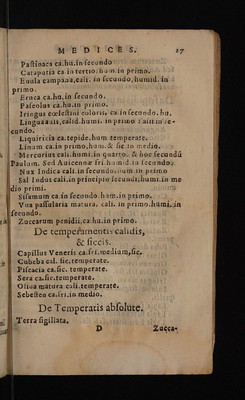 MEDICES. 27
Pastinaca ca.hu.in secundo
Cataputia ca in tertio.hum in primo.
Enula campana,cali. in secundo, humid. in
primo.
Eruca ca.hu.in secundo.
Faseolus ca.hu.in primo.
Iringus cœlestini coloris, ca in secundo. hu.
Lingua auis, calid.humi. in primo
cundo.
Liquiricia ca.tepide.hum temperate.
Linum ca.in primo,hum. & sic in medio.
Mercurius cali.humi.in quarto. & hoc secundũ
Paulum. Sed Auicennæ fri.humid.in secundo.
Nux Indica cali.in secundo.hum in primo
Sal Indus cali.in principio secundi,humi. in me
dio primi.
Sisamum ca in secundo. hum.in primo.
Vua passularia matura. cali. in primo.humi. in
secundo.
Zuccarum penidii,ca.hu.in primo.
De temperamentis calidis,
& siccis.
Capillus Veneris ca.fri.medium,sic.
Cubeba cal. sic.temperate.
Piscacia ca.sic. temperate.
Sera ca.sic.temperate.
Oliua matura cali.temperate.
Sebesten ca.fri.in medio.
De Temperatis absolute.
Terra sigillata.
D Zucca-